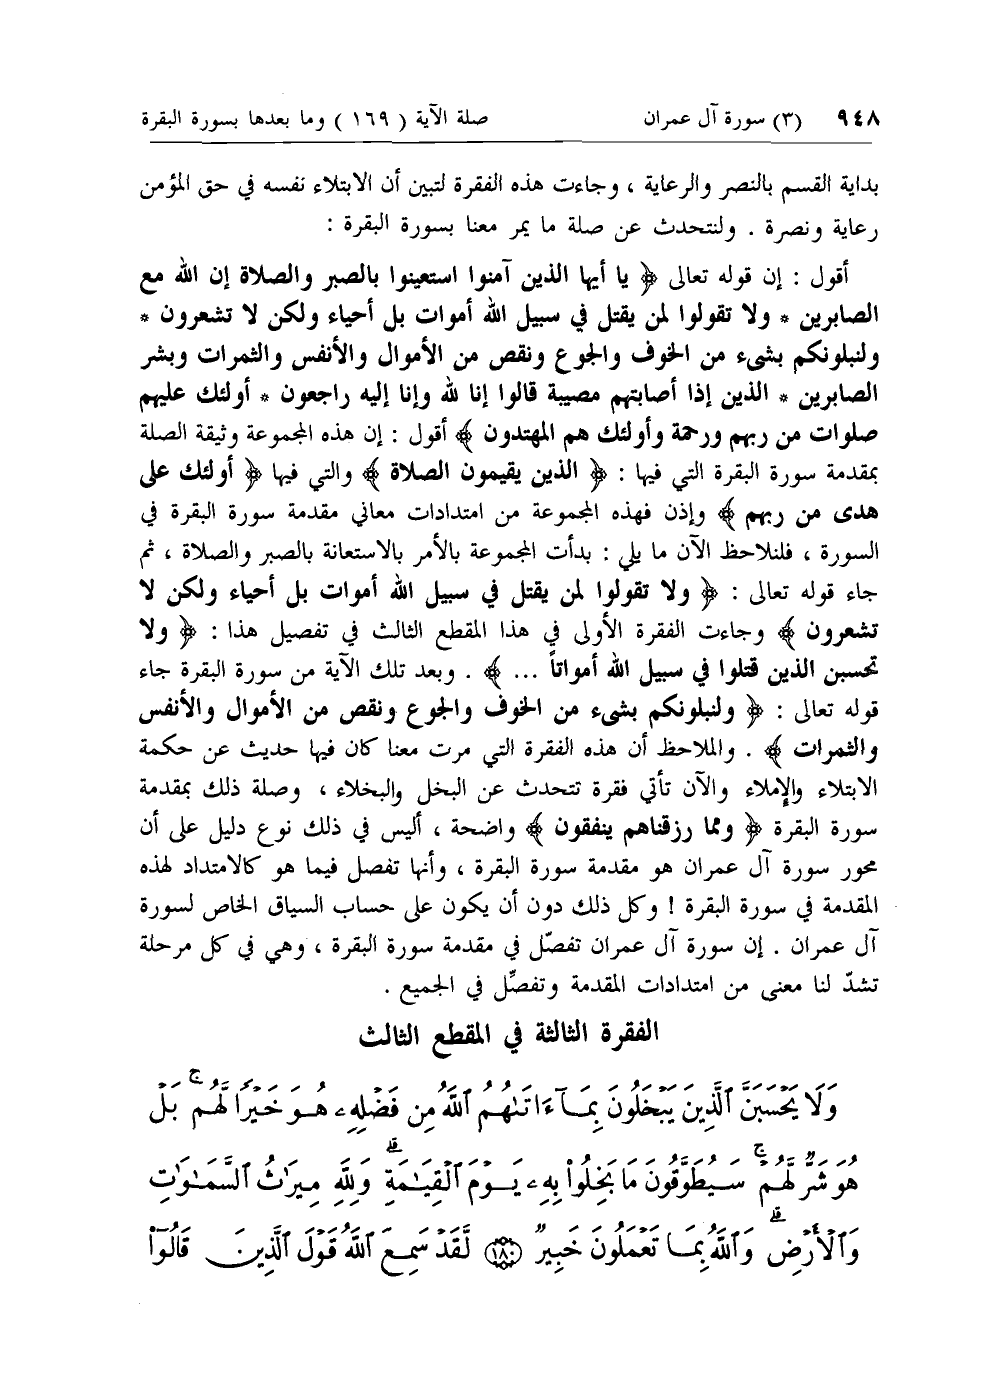 ٩٤٨ (٣) سورة آل عمران صلة الآية ( ١٦٩ ) وما بعدها بسورة البقرة
بداية القسم بالنصر والرعاية ، وجاءت هذه الفقرة لتبين أن الابتلاء نفسه في حق المؤمن
رعاية ونصرة . ولنتحدث عن صلة ما يمر معنا بسورة البقرة :
أقول : إن قوله تعالى ﴿ يا أيها الذين آمنوا استعينوا بالصبر والصلاة إن الله مع
الصابرين * ولا تقولوا لمن يقتل في سبيل الله أموات بل أحياء ولكن لا تشعرون *
ولنبلونكم بشىء من الخوف والجوع ونقص من الأموال والأنفس والثمرات وبشر
الصابرين * الذين إذا أصابتهم مصيبة قالوا إنا لله وإنا إليه راجعون * أولئك عليهم
صلوات من ربهم ورحمة وأولئك هم المهتدون ﴾ أقول : إن هذه المجموعة وثيقة الصلة
بمقدمة سورة البقرة التي فيها : ﴿ الذين يقيمون الصلاة ﴾ والتي فيها ﴿ أولئك على
هدى من ربهم ﴾ وإذن فهذه المجموعة من امتدادات معاني مقدمة سورة البقرة في
السورة ، فلنلاحظ الآن ما يلي : بدأت المجموعة بالأمر بالاستعانة بالصبر والصلاة ، ثم
جاء قوله تعالى : ﴿ ولا تقولوا لمن يقتل في سبيل الله أموات بل أحياء ولكن لا
تشعرون ﴾ وجاءت الفقرة الأولى في هذا المقطع الثالث في تفصيل هذا : ﴿ ولا
تحسبن الذين قتلوا في سبيل الله أمواتاً ... ﴾ . وبعد تلك الآية من سورة البقرة جاء
قوله تعالى : ﴿ ولنبلونكم بشىء من الخوف والجوع ونقص من الأموال والأنفس
والثمرات ﴾ . والملاحظ أن هذه الفقرة التي مرت معنا كان فيها حديث عن حكمة
الابتلاء والإملاء والآن تأتي فقرة تتحدث عن البخل والبخلاء ، وصلة ذلك بمقدمة
سورة البقرة ﴿ ومما رزقناهم ينفقون ﴾ واضحة ، أليس في ذلك نوع دليل على أن
محور سورة آل عمران هو مقدمة سورة البقرة ، وأنها تفصل فيما هو كالامتداد لهذه
المقدمة في سورة البقرة ! وكل ذلك دون أن يكون على حساب السياق الخاص لسورة
آل عمران . إن سورة آل عمران تفصّل في مقدمة سورة البقرة ، وهي في كل مرحلة
تشدّ لنا معنى من امتدادات المقدمة وتفصِّل في الجميع .
الفقرة الثالثة في المقطع الثالث
وَلَا يَحْسَبَنَّ ٱلَّذِينَ يَبْخَلُونَ بِمَآ ءَاتَىٰهُمُ ٱللَّهُ مِن فَضْلِهِۦ هُوَ خَيْرًا لَّهُم ۚ بَلْ
هُوَ شَرٌّ لَّهُمْ ۚ سَيُطَوَّقُونَ مَا بَخِلُوا۟ بِهِۦ يَوْمَ ٱلْقِيَٰمَةِ ۗ وَلِلَّهِ مِيرَٰثُ ٱلسَّمَٰوَٰتِ
وَٱلْأَرْضِ ۗ وَٱللَّهُ بِمَا تَعْمَلُونَ خَبِيرٌ ﴿١٨٠﴾ لَّقَدْ سَمِعَ ٱللَّهُ قَوْلَ ٱلَّذِينَ قَالُوٓا۟